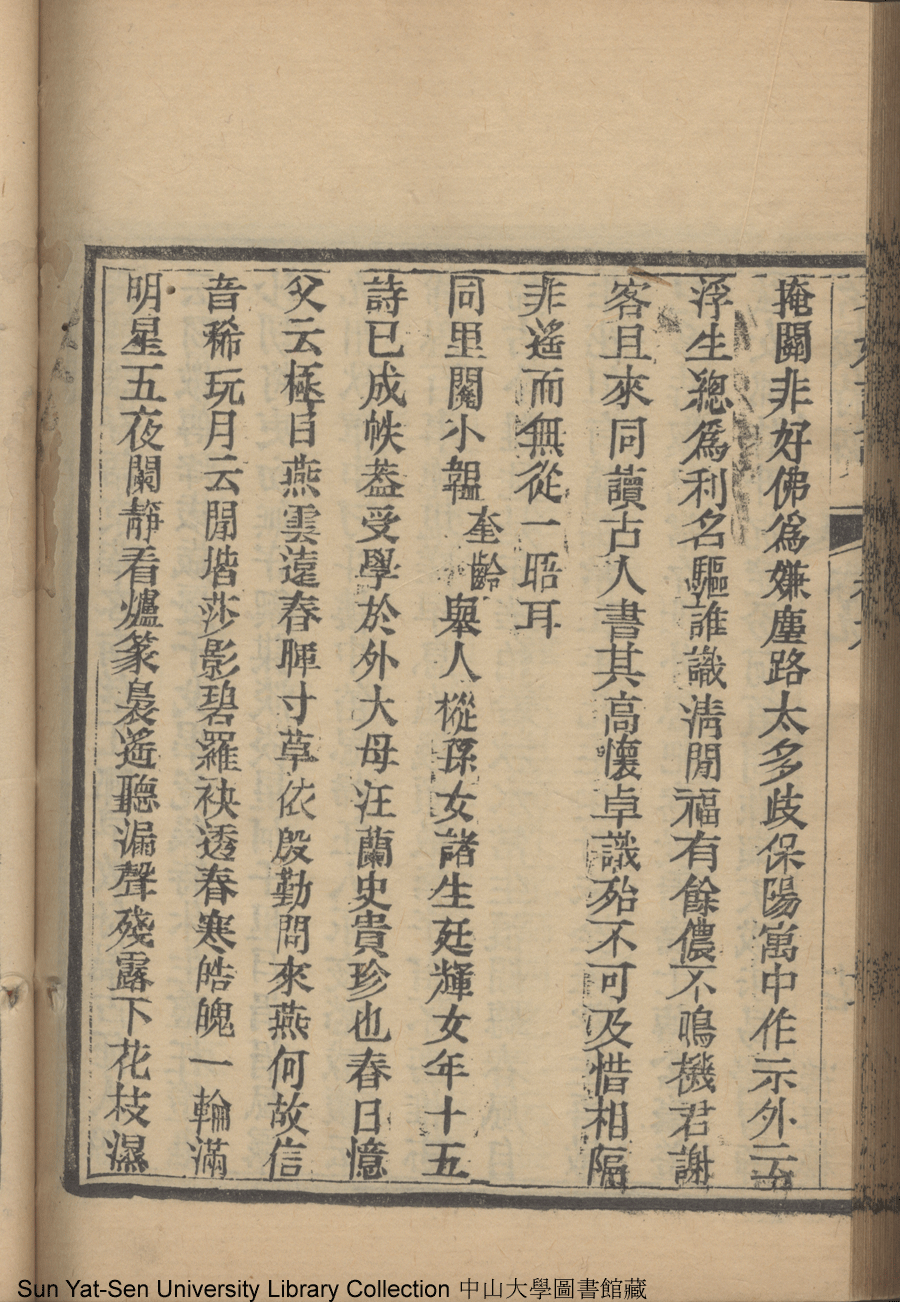 掩關非好佛爲嫌塵路太多歧保陽寓中作示外云
浮生總爲利名驅誰識淸閒福有餘儂不鳴機君謝
客且來同讀古人書其高懷卓識殆不可及惜相隔
非遙而無從一晤耳
同里闕小韞奎齡舉人樅孫女諸生廷輝女年十五
詩已成帙葢受學於外大母汪蘭史貴珍也春日憶
父云極目燕雲遠春暉寸草依殷勤問來燕何故信
音稀玩月云閒堦莎影碧羅袂透春寒皓魄一輪滿
明星五夜闌靜看爐篆裊遙聽漏聲殘露下花枝濕
Sun Yat-Sen University Library Collection 中山大學圖書館藏